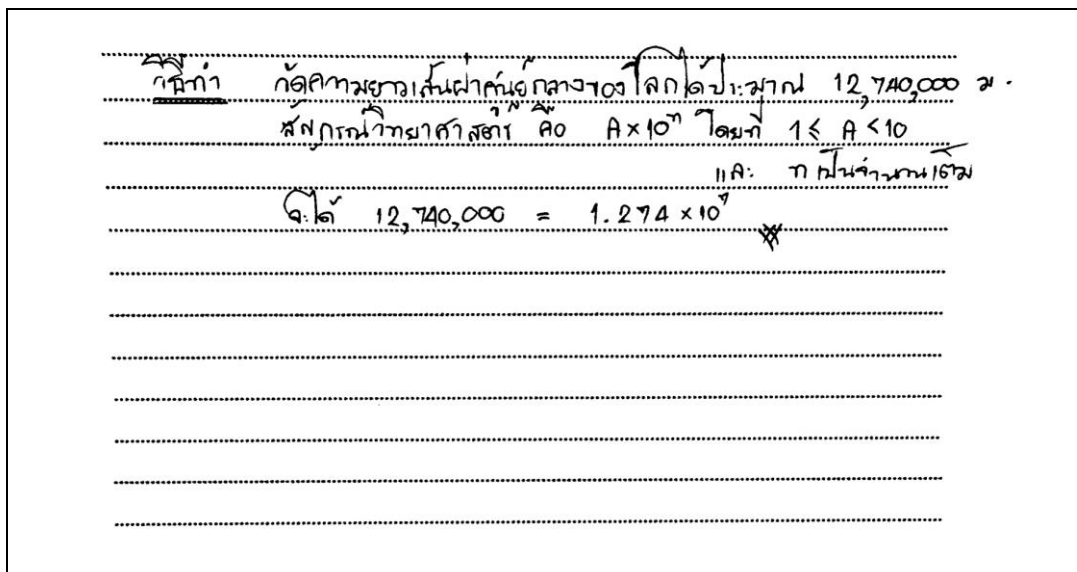 วิธีทำ วัดความยาวเส้นผ่าศูนย์กลางของโลกได้ประมาณ 12,740,000 ม.
สัญกรณ์วิทยาศาสตร์ คือ A × 10ⁿ โดยที่ 1 ≤ A < 10
และ n เป็นจำนวนเต็ม
จะได้ 12,740,000 = 1.274 × 10⁷